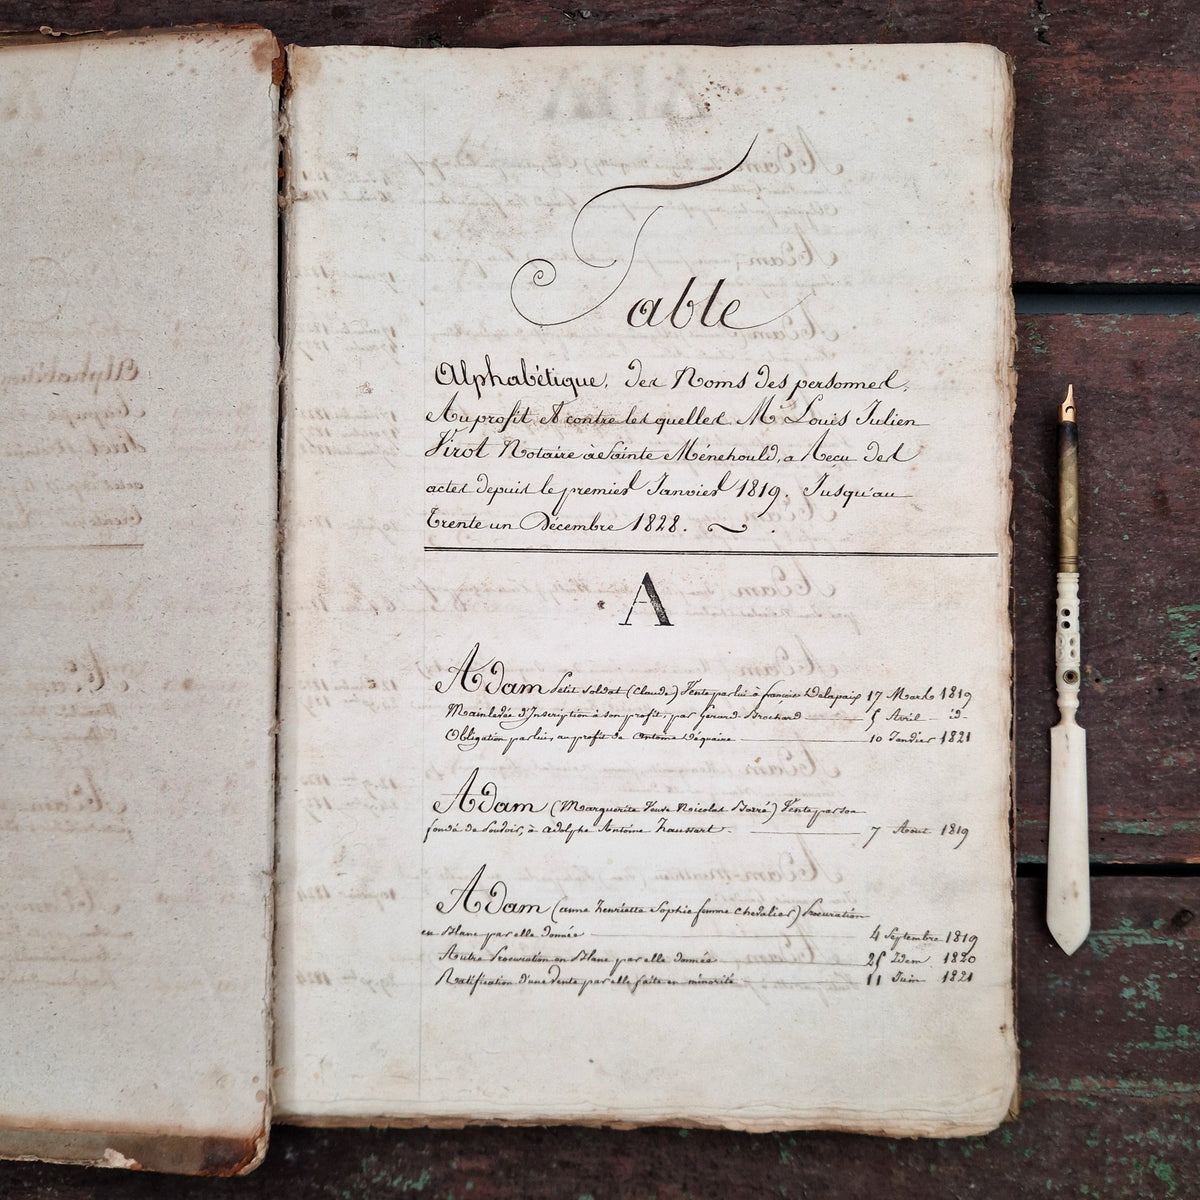 Table
Alphabétique, des Noms des personnes,
Au profit et contre lesquelles Me Louis Julien
Virot Notaire à Sainte Ménehould, a Recu des
actes depuis le premier Janvier 1819. Jusqu'au
trente un Décembre 1828.
A
Adam Petit soldat (Claude) Vente par lui à françois Delapaix 17 Mars 1819
Mainlevée d'Inscription à son profit, par Gerard Brochard 5 Avril id.
Obligation par lui, au profit de Antoine 10 Janvier 1821
Adam (Marguerite Veuve Nicolas Barré) Vente par son
fondé de Pouvoir, à Adolphe Antoine haussart 7 Aout 1819
Adam (anne henriette Sophie femme chevalier) Procuration
en Blanc par elle donnée 4 Septembre 1819
Autre Procuration en Blanc par elle donnée 25 Idem 1820
Ratification d'une Vente par elle faite en minorité 11 Juin 1821